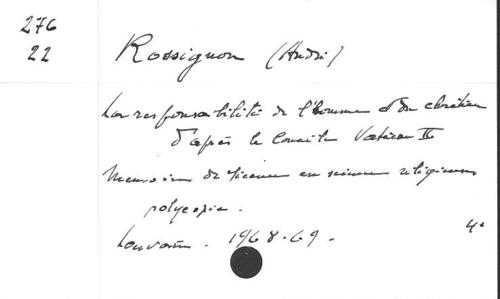 276
22
Rossignon (André)
La responsabilité de l'homme et du chrétien
d'après le Concile Vatican II
Memoire de licence en sciences religieuses
polycopie.
Louvain. 1968-69.
4°